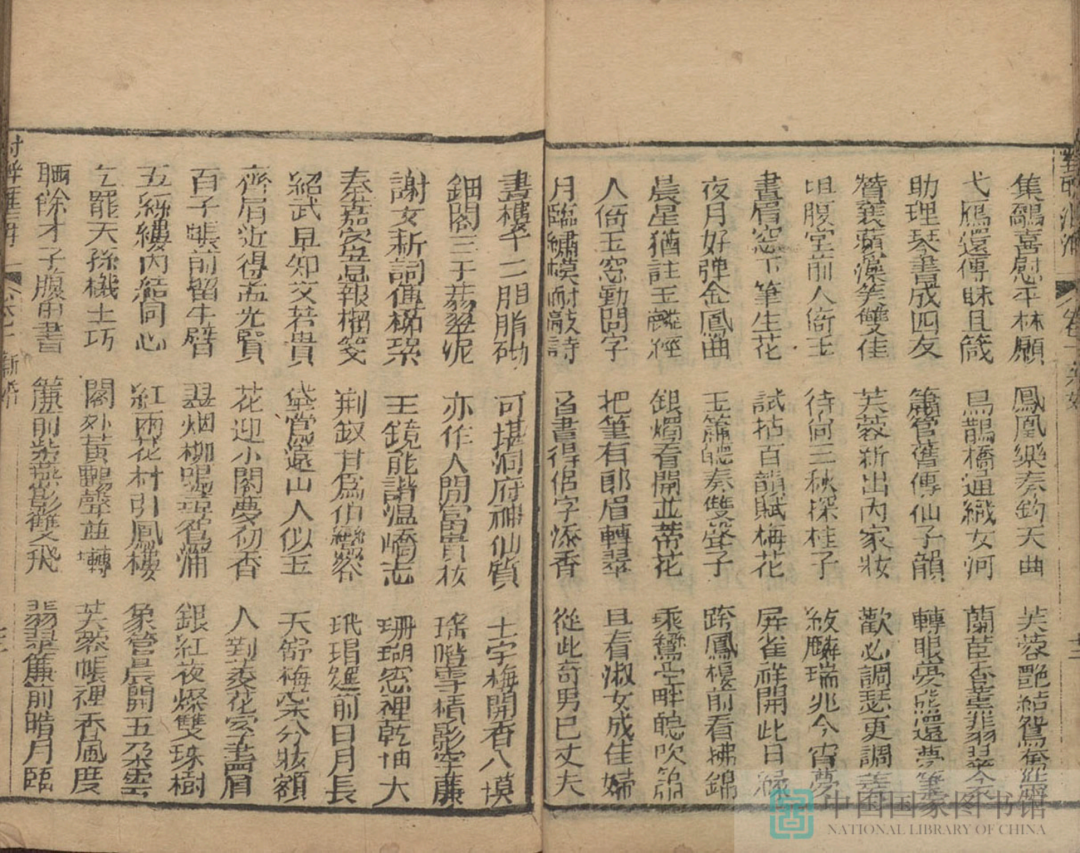 集鷸喜慰平林願 鳳凰樂奏鈞天曲 芙蓉艷結鴛鴦
弋鴈還傳昧旦箴 烏鵲橋通織女河 蘭茝香薰翡翠衾
助理琴書成四友 簫管舊傳仙子韻 轉眼熊還夢
贊襄蘋藻笑雙佳 芙蓉新出內家妝 歡必調瑟更調
坦腹堂前人倚玉 待何三秋探桂子 紱麟瑞兆今宵夢
畫眉窓下筆生花 試拈百韻賦梅花 屏雀祥開此日緣
夜月好彈金鳳曲 玉簫聽奏雙聲子 跨鳳樓前看拂錦
晨星猶註玉 經 銀燭看開並蒂花 乘鸞空畔聽吹
人倚玉窓勤問字 把筆有郎眉轉翠 且看淑女成佳婦
月臨繡幙耐敲詩 習書得侶字添香 從此奇男已丈夫
畫樓十二胭脂砌 可堪洞府神仙質 士字梅開香入幙
鈿閣三千翡翠泥 亦作人間富貴 瑤堦雪積影穿簾
謝女新詞傳柳絮 玉鏡能諧溫嶠志 珊瑚窓裡乾坤大
秦嘉家息報榴箋 荊釵甘爲伯鸞容 玳瑁筵前日月長
紹武早知文若貴 黛當遠山人似玉 天錦梅蕊分妝額
齊眉近得孟光賢 花迎小閣夢初香 人對菱花字畫眉
百子帳前留半臂 翠烟柳暗尋鴛浦 銀紅夜燦雙珠樹
五絲縷內結同心 紅雨花村引鳳樓 象管晨開五朶雲
乞罷天孫機上巧 閣外黃鸝聲並囀 芙蓉帳裡香風度
晒餘才子腹中書 簾前紫燕影雙飛 翡翠簾前皓月臨
新婚
中国国家图书馆
NATIONAL LIBRARY OF CHINA